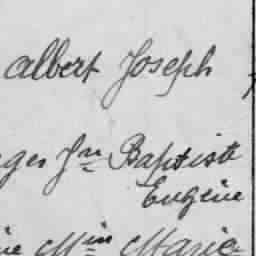 albert Joseph
ges Jn Baptiste
Eugène
ie Min Marie